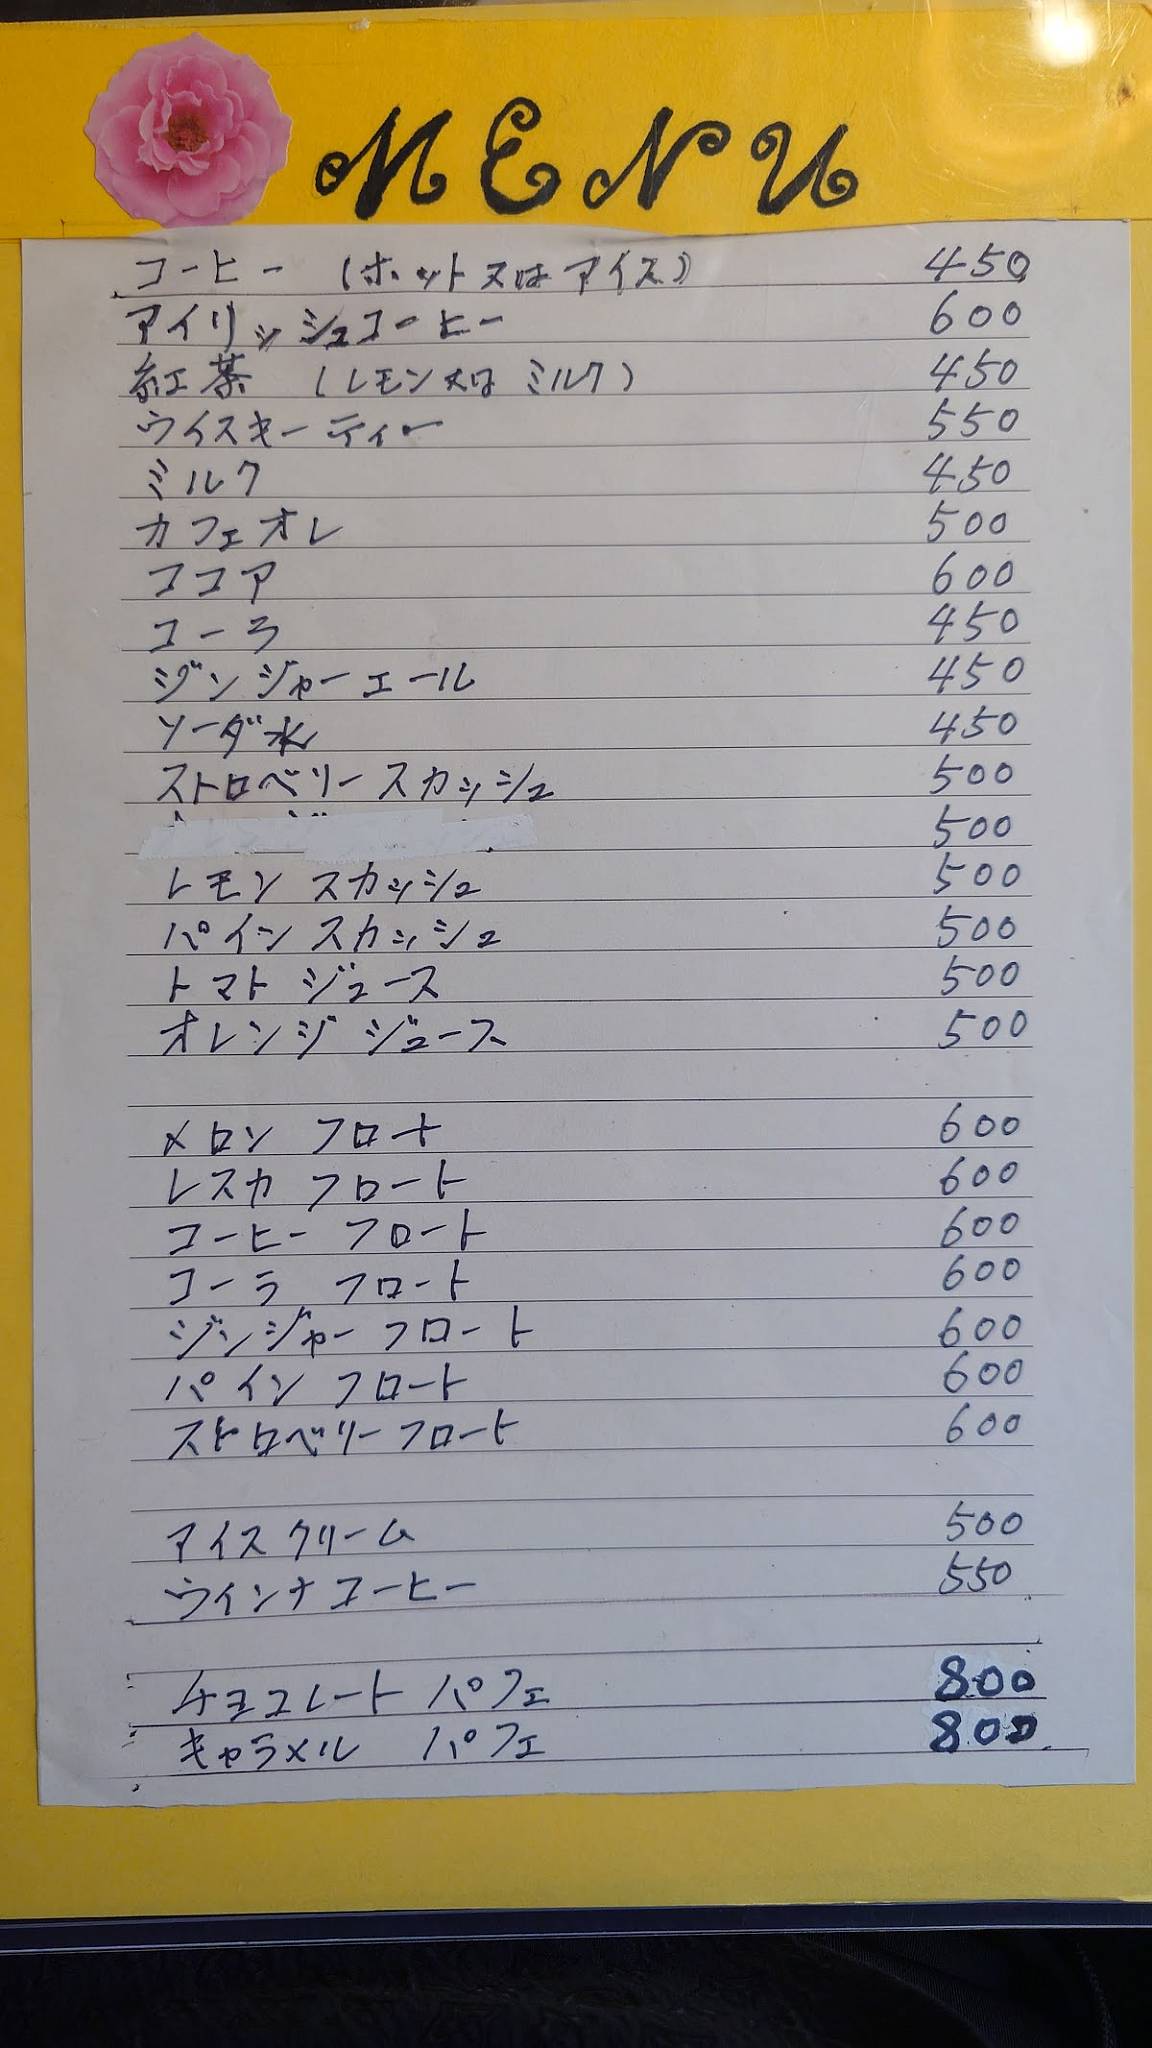 MENU
コーヒー （ホット又はアイス） 450
アイリッシュコーヒー 600
紅茶 （レモン又はミルク） 450
ウイスキーティー 550
ミルク 450
カフェオレ 500
ココア 600
コーラ 450
ジンジャーエール 450
ソーダ水 450
ストロベリースカッシュ 500
500
レモンスカッシュ 500
パインスカッシュ 500
トマトジュース 500
オレンジジュース 500
メロンフロート 600
レスカフロート 600
コーヒーフロート 600
コーラ フロート 600
ジンジャーフロート 600
パインフロート 600
ストロベリーフロート 600
アイスクリーム 500
ウインナコーヒー 550
チョコレート パフェ 800
キャラメル パフェ 800